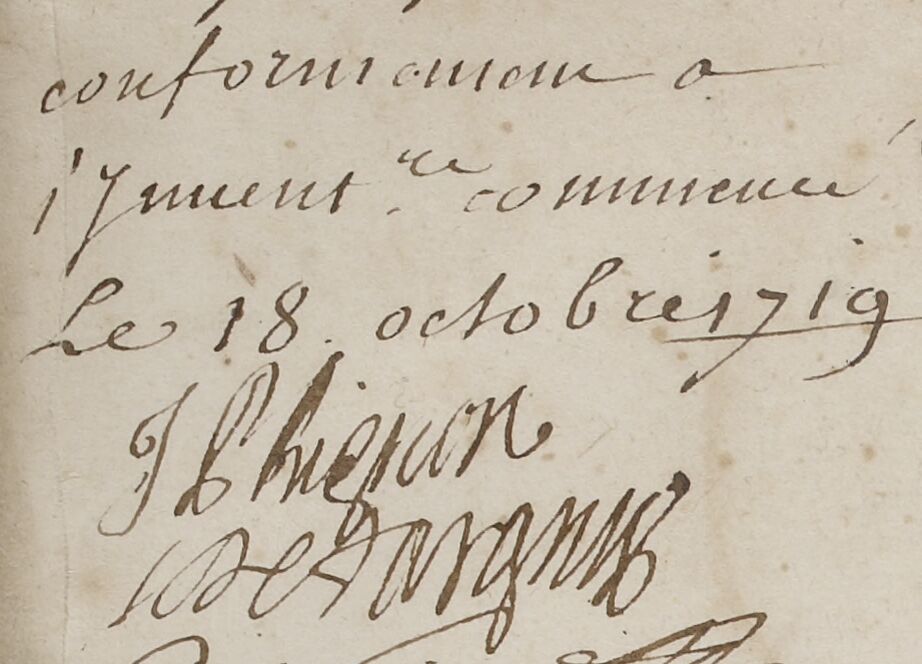 conformement a
l'Jnvent.re commencé
Le 18. octobre 1719
J P Bignon